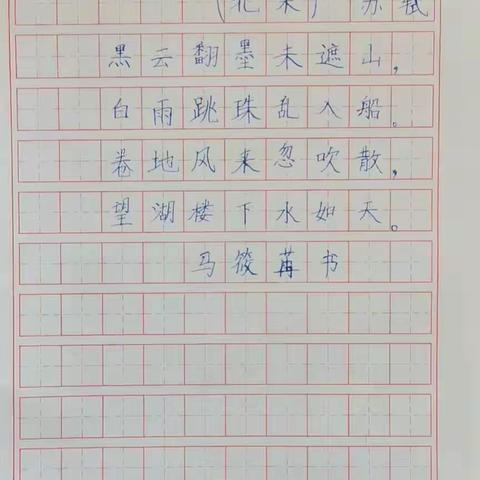 (北宋) 苏轼
黑云翻墨未遮山,
白雨跳珠乱入船。
卷地风来忽吹散,
望湖楼下水如天。
马筱苒书